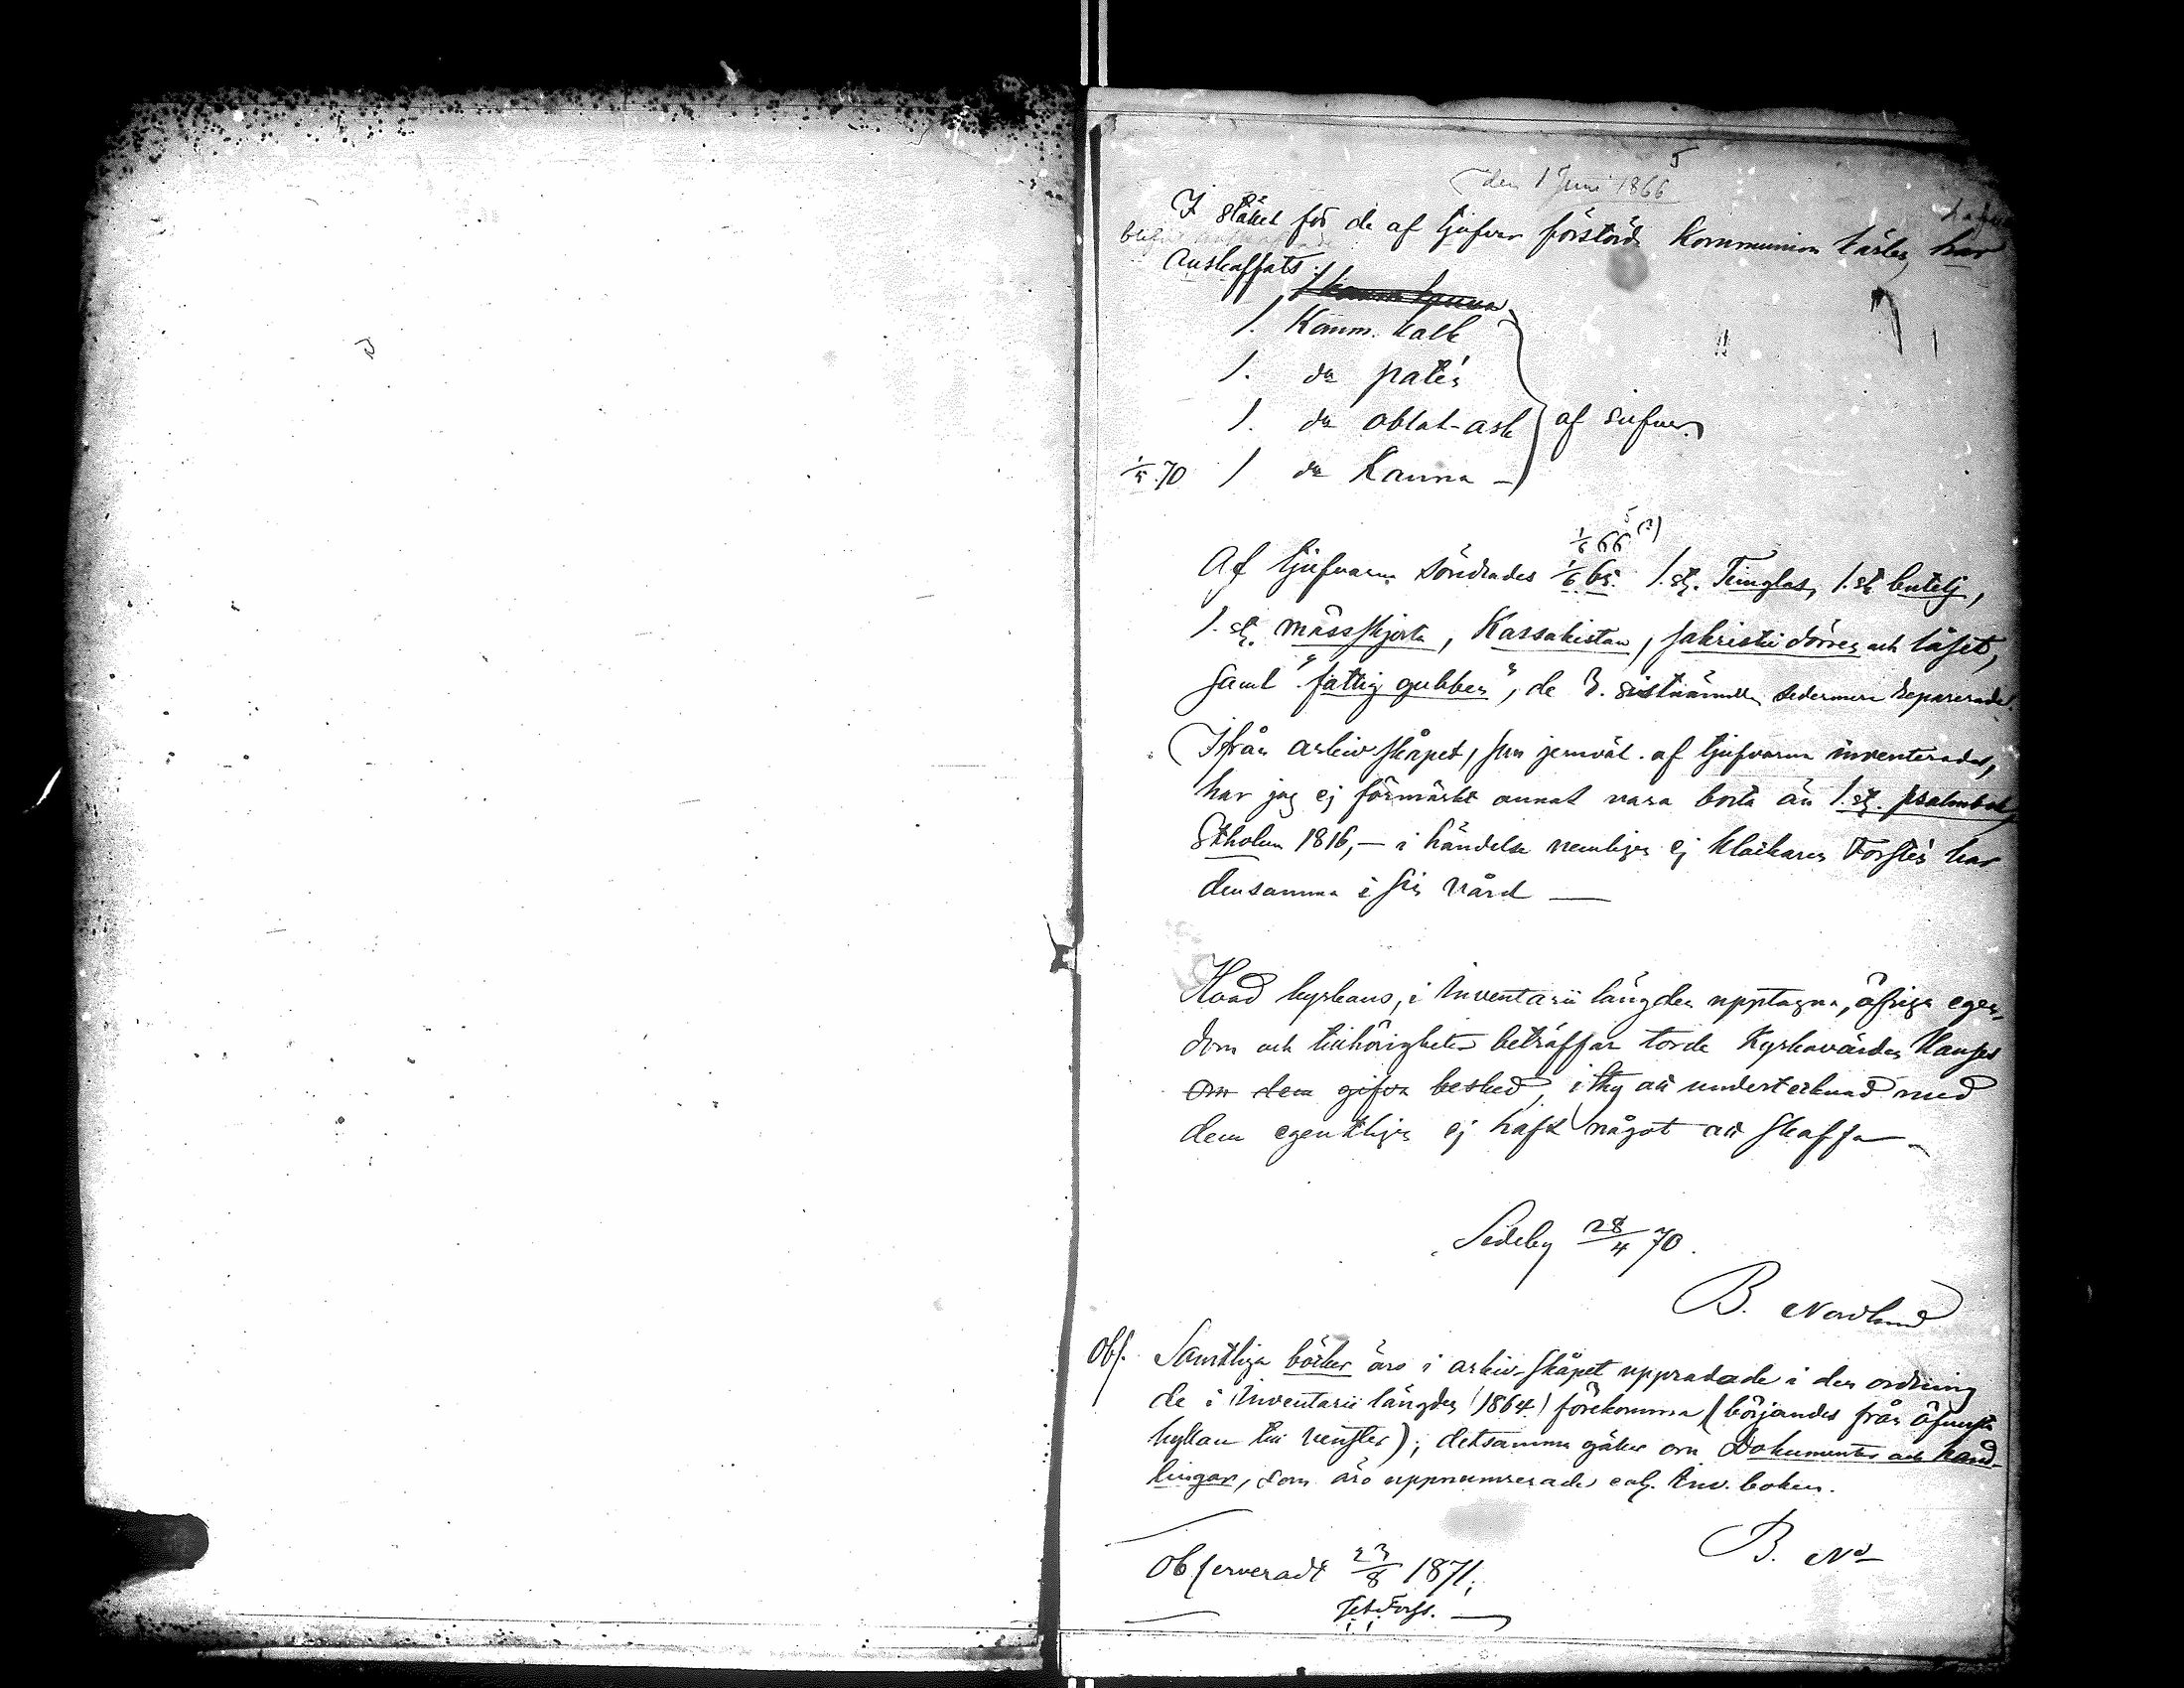 5
(den 1 Juni 1866
I stället för de af tjufvar förstörda Kommunion kärlen, har
anskaffats:
1. Komm. kalk
1. do patén
1. do oblat-ask } af silfver
1/5 70 1 do Kanna
5 (?)
1/6 66
Af tjufvarna söndrades 1/6 65. 1. st. Timglas, 1. st. butelj,
1. st. mässskjorta, Kassakistan, sakristie dörren och låset,
samt "fattig gubben", de 3. sistnämnda sedermera reparerade.
Ifrån arkiv skåpet, som jemväl af tjufvarna inventerades,
har jag ej förmärkt annat vara borta än 1. st. psalmbok,
Stholm 1816, — i händelse nemligen ej klockaren Forssén har
densamma i sin vård —
Hvad kyrkans, i Inventarii längden upptagna, öfriga egen-
dom och tillhörigheter beträffar torde Kyrkovärden
om dem gifva besked, ithy att undertecknad med
dem egentligen ej haft något att skaffa —
Sideby 28/4 70.
B. Nordlund
Obs. Samtliga böcker äro i arkiv-skåpet uppradade i den ordning
de i Inventarii längden (1864) förekomma (börjandes från öfversta
hyllan till venster); detsamma gäller om Dokumenter och hand-
lingar, som äro uppnumrerade enl. Inv. boken.
B. Nd
Observeradt 23/8 1871;